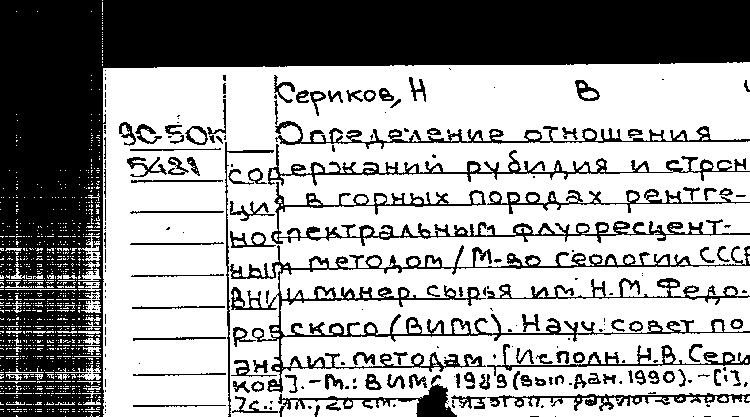 Сериков, Н В
90-50к Определение отношения
5481 содержаний рубидия и строн
ция в горных породах рентге-
носпектральным флуоресцент-
ным методом / М-во геологии СССР
ВНИИ минер. сырья им. Н.М. Федо-
ровского (ВИМС). Науч. совет по
аналит. методам; [Исполн. Н.В. Сери
ков]. - М.: ВИМС 1989 (вып. дан. 1990). - [1],
7с.: ил.; 20 см. - и